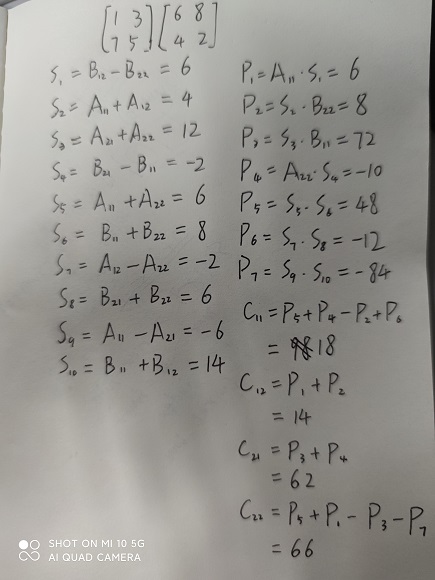 [1 3
7 5] [6 8
4 2]
S₁ = B₁₂ - B₂₂ = 6
S₂ = A₁₁ + A₁₂ = 4
S₃ = A₂₁ + A₂₂ = 12
S₄ = B₂₁ - B₁₁ = -2
S₅ = A₁₁ + A₂₂ = 6
S₆ = B₁₁ + B₂₂ = 8
S₇ = A₁₂ - A₂₂ = -2
S₈ = B₂₁ + B₂₂ = 6
S₉ = A₁₁ - A₂₁ = -6
S₁₀ = B₁₁ + B₁₂ = 14
P₁ = A₁₁ · S₁ = 6
P₂ = S₂ · B₂₂ = 8
P₃ = S₃ · B₁₁ = 72
P₄ = A₂₂ · S₄ = -10
P₅ = S₅ · S₆ = 48
P₆ = S₇ · S₈ = -12
P₇ = S₉ · S₁₀ = -84
C₁₁ = P₅ + P₄ - P₂ + P₆
= 18
C₁₂ = P₁ + P₂
= 14
C₂₁ = P₃ + P₄
= 62
C₂₂ = P₅ + P₁ - P₃ - P₇
= 66
SHOT ON MI 10 5G
AI QUAD CAMERA